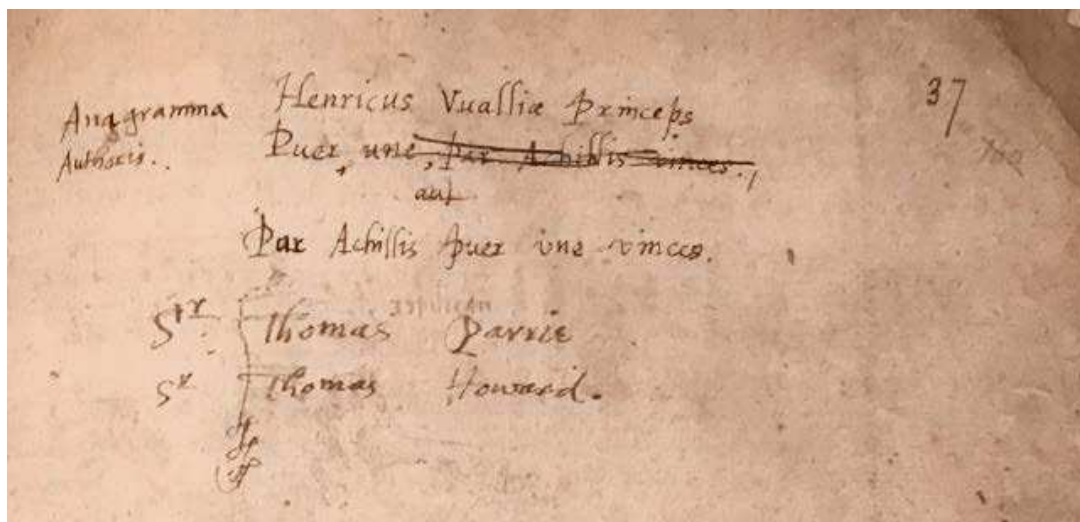 37
Anagramma Henricus Vualliæ Princeps
Authoris.. Puer, une, par Achillis vinces.,
aut
Par Achillis puer une vinces.
Sr Thomas Parrie
Sr Thomas Howard.